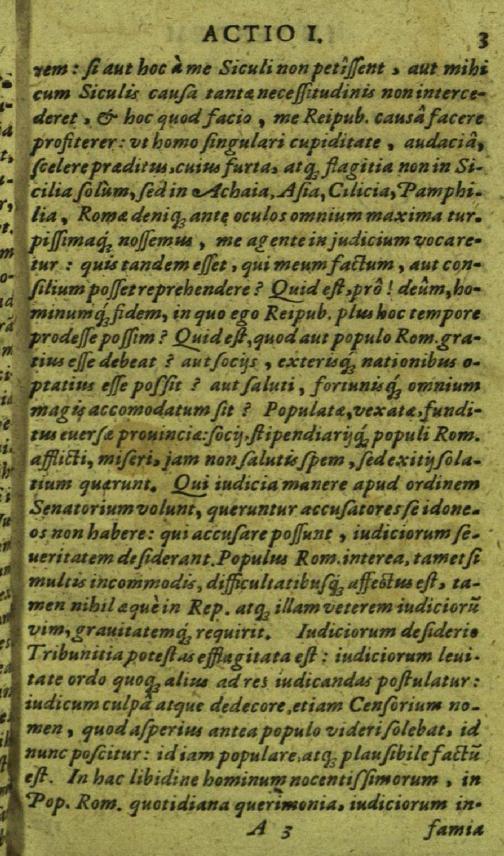 ACTIO I. 3
rem : si aut hoc à me Siculi non petîssent , aut mihi
cum Siculis causa tantæ necessitudinis non interce-
deret , & hoc quod facio , me Reipub. causâ facere
profiterer : vt homo singulari cupiditate , audaciâ,
scelere præditus, cuius furta, atq; flagitia non in Si-
cilia solùm, sed in Achaia, Asia, Cilicia, Pamphi-
lia, Romæ deniq; ante oculos omnium maxima tur-
pissimaq; nossemus , me agente in judicium vocare-
tur : quis tandem esset , qui meum factum , aut con-
silium posset reprehendere ? Quid est, prô ! deûm, ho-
minumq; fidem, in quo ego Reipub. plus hoc tempore
prodesse possim ? Quid est, quod aut populo Rom. gra-
tius esse debeat ? aut socijs , exterisq; nationibus o-
ptatius esse possit ? aut saluti , fortunisq; omnium
magis accomodatum sit ? Populatæ, vexatæ, fundi-
tus euersæ prouinciæ: socij, stipendiarijq; populi Rom.
afflicti, miseri, jam non salutis spem , sed exitij sola-
tium quærunt. Qui iudicia manere apud ordinem
Senatorium volunt, queruntur accusatores se idone-
os non habere: qui accusare possunt , iudiciorum se-
ueritatem desiderant. Populus Rom. interea, tametsi
multis incommodis, difficultatibusq; affectus est, ta-
men nihil æquè in Rep. atq; illam veterem iudiciorũ
vim, grauitatemq; requirit. Iudiciorum desiderio
Tribunitia potestas efflagitata est : iudiciorum leui-
tate ordo quoq; alius ad res iudicandas postulatur :
iudicum culpâ atque dedecore, etiam Censorium no-
men , quod asperius antea populo videri solebat, id
nunc poscitur : id iam populare, atq; plausibile factũ
est. In hac libidine hominum nocentissimorum , in
Pop. Rom. quotidiana querimonia, iudiciorum in-
A 3 famia